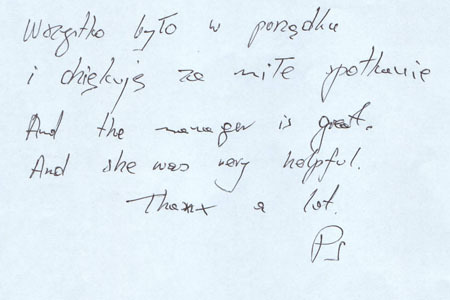 Wszystko było w porządku
i dziękuję za miłe spotkanie
And the manager is great.
And she was very helpful.
Thanx a lot.
Ps